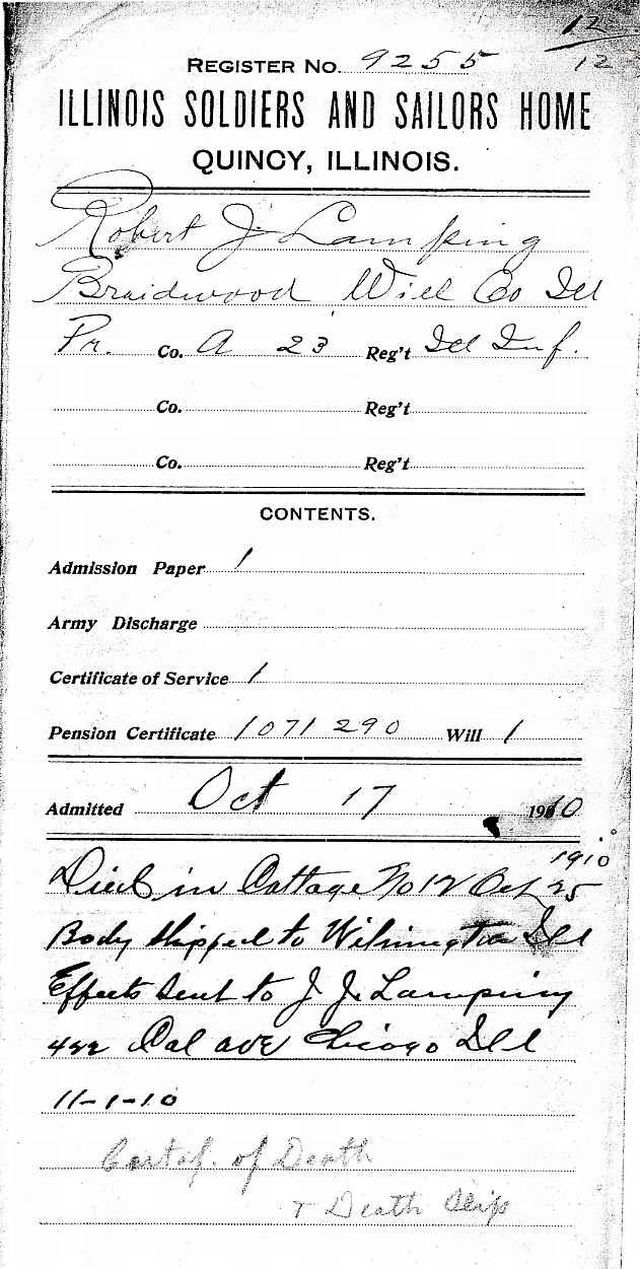 12
12
REGISTER No. 9255
ILLINOIS SOLDIERS AND SAILORS HOME
QUINCY, ILLINOIS.
Robert J. Lamping
Braidwood Will Co Ill
Pr. Co. A 23 Reg't Ill Inf.
Co. Reg't
Co. Reg't
CONTENTS.
Admission Paper 1
Army Discharge
Certificate of Service 1
Pension Certificate 1071290 Will 1
Admitted Oct 17 1910
1910
Died in Cottage No 12 Oct 25
Body shipped to Wilmington Ill
Effects sent to J. J. Lamping
422 Oal ave Chicago Ill
11-1-10
Certif. of Death
& Death Slip